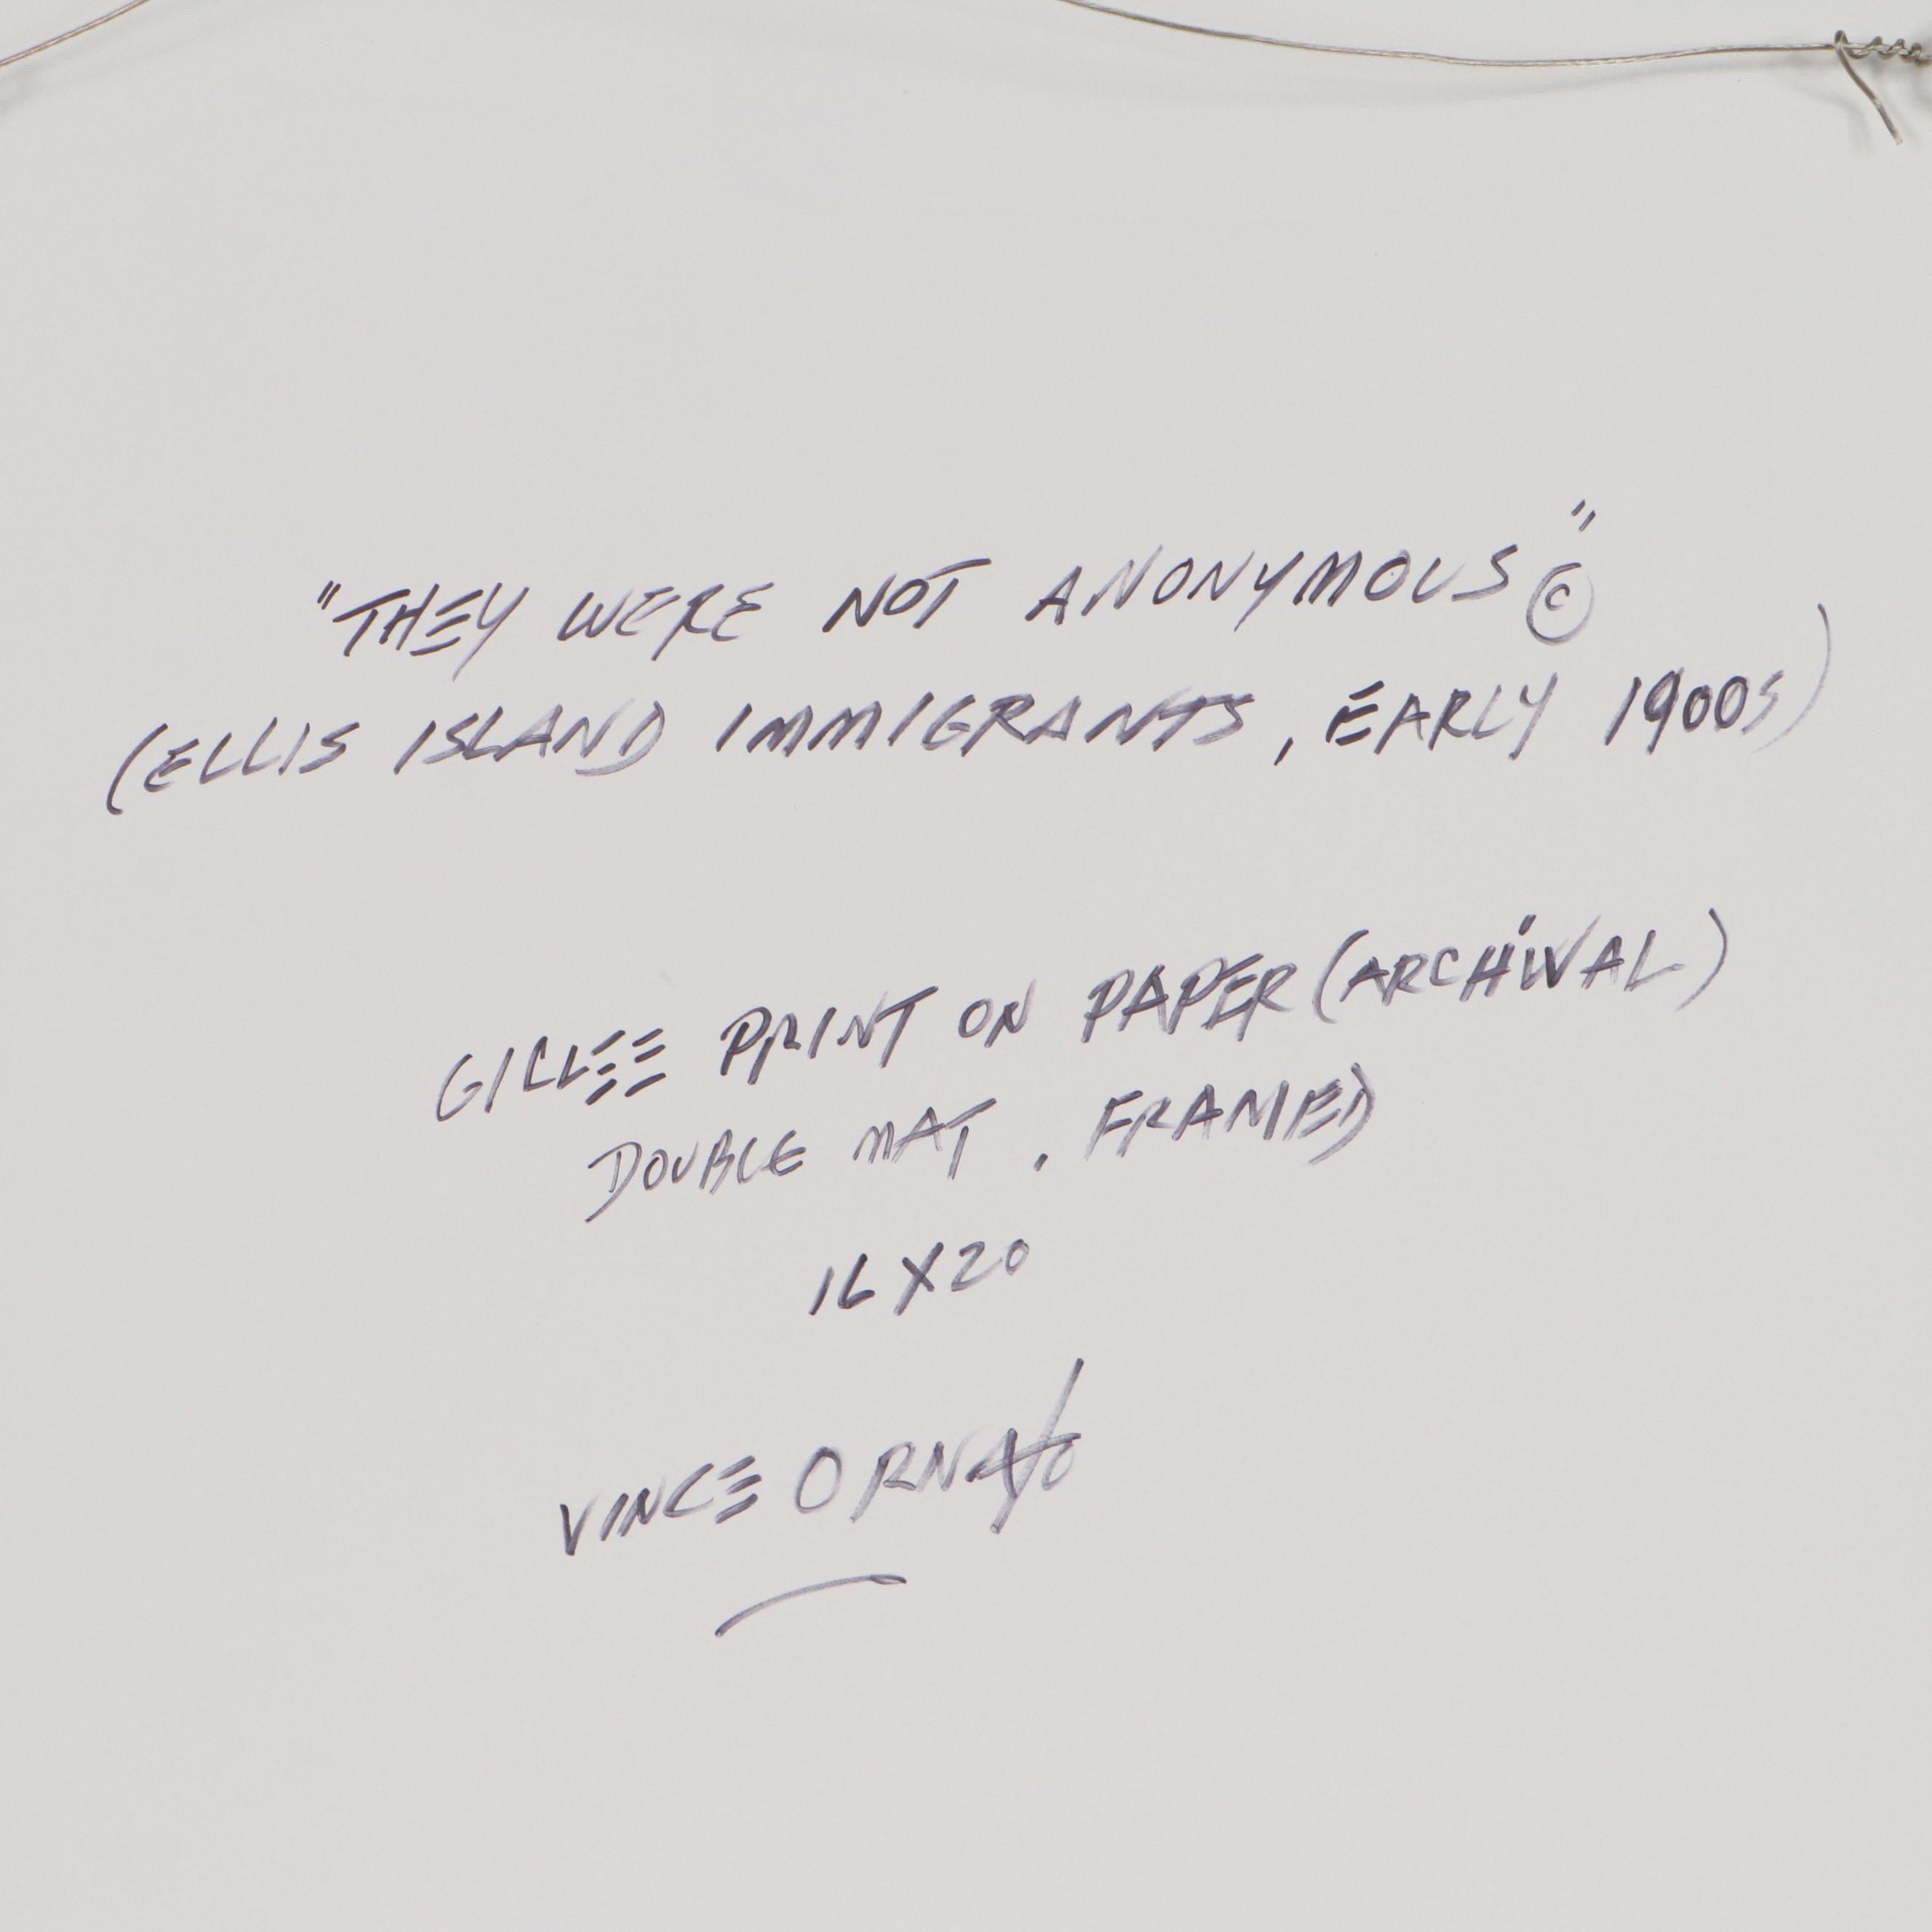 "THEY WERE NOT ANONYMOUS ©"
(ELLIS ISLAND IMMIGRANTS, EARLY 1900S)
GICLEE PRINT ON PAPER (ARCHIVAL)
DOUBLE MAT, FRAMED
16X20
VINCE ORNATO